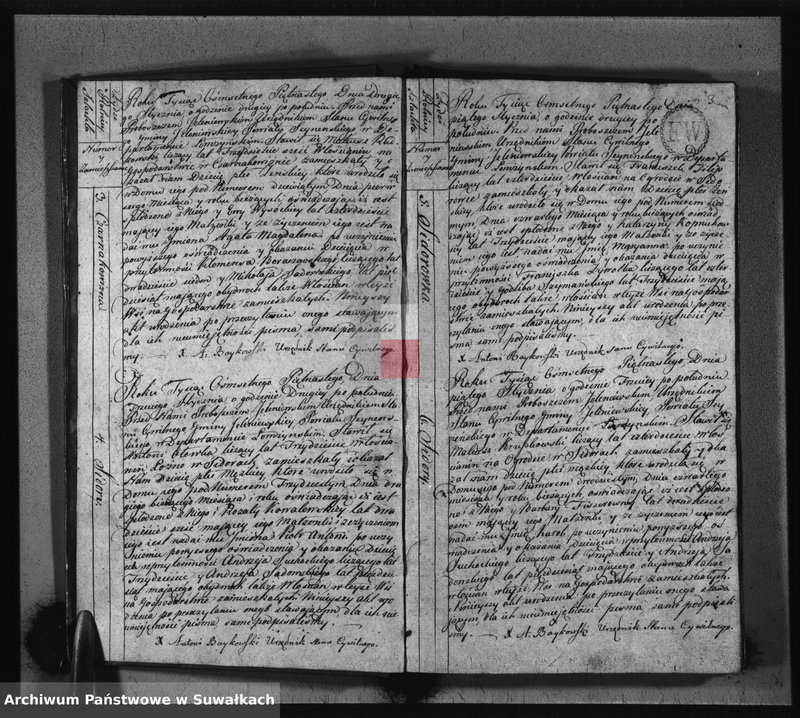 Roku Tysiąc Ośmsetnego Piętnastego Dnia Drugiego
Stycznia o godzinie drugiey po południu. Przed nami
Proboszczem Jeleniewskim Urzędnikiem Stanu Cywilnego
Gminy Jeleniewskiey Powiatu Seynenskiego w De-
partamencie Łomżyńskim Stawił się
liczący lat Trzydzieście sześć Włościanin na
Gospodarstwie w Czarnakowiznie zamieszkały y o-
kazał nam Dziecię płci Żenskiey które urodziło się
w Domu iego pod Numerem dziewiątym Dnia pierw-
szego Miesiąca y roku bieżących, oświadczaiąc iż iest
spłodzone z Niego y Ewy Wysockiey lat czterdzieście
maiącey iego Małżonki y że życzeniem iego iest na-
dać mu Imiona Agata Magdalena po uczynieniu
powyższego oświadczenia y okazaniu Dziecięcia w
przytomności Klemensa liczącego lat
dwadzieście siedm y Mikołaja Sadowskiego lat pięć-
dziesiąt maiącego obydwóch także Włościan w teyże
Wsi na gospodarstwie zamieszkałych. Ninieyszy
akt urodzenia po przeczytaniu onego stawaiącym
dla ich nieumieiętności pisma sami podpisaliś-
my.
X A. Baykowski Urzędnik Stanu Cywilnego
3. Czarnakowizna
Roku Tysiąc Ośmsetnego Piętnastego Dnia
Trzeciego Stycznia o godzinie Drugiey po południu
Przed Nami Proboszczem Jeleniewskim Urzędnikiem Sta-
nu Cywilnego Gminy Jeleniewskiey Powiatu Seynens-
kiego w Departamencie Łomżyńskim Stawił się
Antoni liczący lat Trzydzieście Włościa-
nin w Sidorach zamieszkały y okazał
Nam Dziecię płci Męzkiey które urodziło się w
Domu iego pod Numerem Trzydziestym Dnia dru-
giego bieżącego Miesiąca y roku oświadczaiąc iż iest
spłodzone z Niego y Rozalii Kowalewskiey lat dwa-
dzieście sześć maiącey iego Małżonki z życzeniem
iego iest nadać mu Imiona Piotr Antoni po uczy-
nieniu powyższego oświadczenia y okazaniu Dziecię-
cia w przytomności Andrzeia Suchockiego liczącego lat
Trzydzieście y Andrzeia Sadowskiego lat pięćdzie-
siąt maiącego obydwóch także Włościan w teyże Wsi
na Gospodarstwie zamieszkałych Ninieyszy akt uro-
dzenia po przeczytaniu onego stawaiącym dla ich nie-
umieiętności pisma sami podpisaliśmy.
X Antoni Baykowski Urzędnik Stanu Cywilnego.
4. Sidory
3
Roku Tysiąc Ośmsetnego Piętnastego Dnia
piątego Stycznia o godzinie drugiey po
południu. Przed nami Proboszczem Jele-
niewskim Urzędnikiem Stanu Cywilnego
Gminy Jeleniewskiey Powiatu Seynenskiego w Departa-
mencie Łomżyńskim Stawił się Filip
liczący lat czterdzieście Włościan na Ogrodzie w Sido-
rowce zamieszkały, y okazał nam Dziecię płci Żen-
skiey, które urodziło się w Domu iego pod Numerem siód-
mym, Dnia czwartego Miesiąca y roku bieżących oświad-
czaiąc iż iest spłodzone z Niego y Katarzyny
lat Trzydzieście maiącey iego Małżonki y że życze-
niem iego iest nadać mu Imię Maryanna po uczynie-
niu powyższego oświadczenia y okazania dziecięcia w
przytomności Franciszka liczącego lat czter-
dzieście y Szymańskiego lat Trzydzieście maią-
cego obydwóch także włościan w teyże Wsi na Gospodar-
stwie zamieszkałych Ninieyszy akt urodzenia po prze-
czytaniu onego stawaiącym, dla ich nieumieiętności pi-
sma sami podpisaliśmy.
X Antoni Baykowski Urzędnik Stanu Cywilnego.
5. Sidorowka
Roku Tysiąc Ośmsetnego Piętnastego, Dnia
piątego Stycznia o godzinie Trzeciey po południu
Przed Nami Proboszczem Jeleniewskim Urzędnikiem
Stanu Cywilnego Gminy Jeleniewskiey, Powiatu Sey-
nenskiego w Departamencie Łomżyńskim. Stawił się
Mateusz Krupkowski liczący lat czterdzieście Włoś-
cianin na Ogrodzie w Sidorach zamieszkały y oka-
zał nam Dziecię płci męzkiey, które urodziło się w
Domu iego pod Numerem Dnia czwartego
Miesiąca y roku bieżących oświadczaiąc iż iest spłodzo-
ne z Niego y Barbary lat dwadzieście
ośm maiącey iego Małżonki y że życzeniem iego iest
nadać mu Imię Karol po uczynieniu powyższego oś-
wiadczenia y okazania Dziecięcia w przytomności Andrzeia
Suchockiego liczącego lat Trzydzieście y Andrzeia Sa-
dowskiego lat pięćdziesiąt maiącego obydwóch także
włościan w teyże Wsi na Gospodarstwie zamieszkałych
Ninieyszy akt urodzenia po przeczytaniu onego stawa-
iącym dla ich nieumieiętności pisma sami podpisali-
śmy.
X A. Baykowski Urzędnik Stanu Cywilnego.
6. Sidory
Archiwum Państwowe w Suwałkach